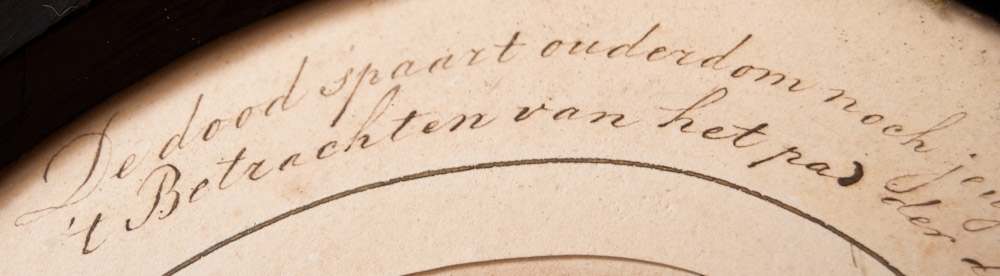 De dood spaart ouderdom noch jeug
't Betrachten van het pad der